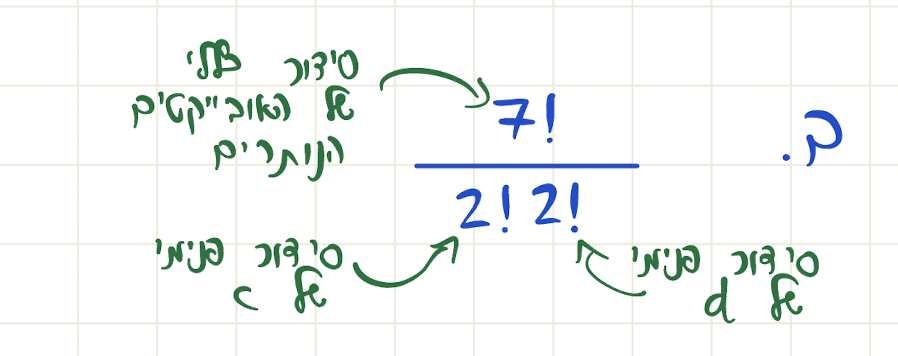 ב.
7!
2! 2!
סידור כללי
של האובייקטים
הנותרים
סידור פנימי
של c
סידור פנימי
של d